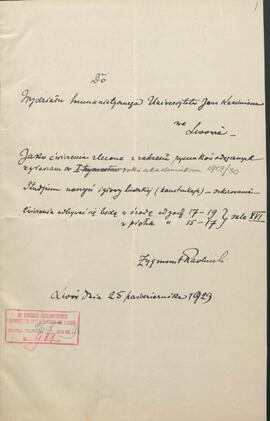 1
Do
Wydziału humanistycznego Uniwersytetu Jana Kazimierza
we
Lwowie
Jako ćwiczenia zlecone z zakresu rysunków odręcznych
zgłaszam w roku akademickim 1929/30
Studjum naczyń i głowy ludzkiej (konstrukcji)
Ćwiczenia odbywać się będą w środę od godz 17-19 sala XVI
w piątek " 15-17
Zygmunt
Lwów dnia 25 października 1929